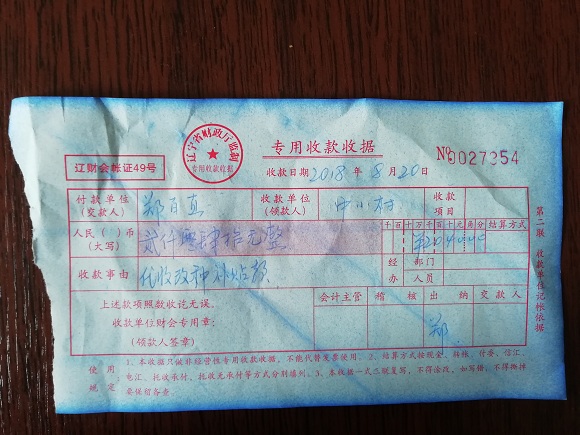 辽宁省财政厅监制
专用收款收据
专用收款收据
辽财会帐证49号
收款日期2018年8月20日
No 0027354
付款单位(交款人) 郑百真 收款单位(领款人) 中小村 收款项目
人民( )币(大写) 贰仟零肆拾元整 千百十万千百十元角分 结算方式
¥204000
收款事由 代收改种补贴款 经办 部门 人员
上述款项照数收讫无误。 会计主管 稽核 出纳 交款人
收款单位财会专用章:
(领款人签章) 郑
使用规定 1、本收据只做非经营性专用收款收据,不能代替发票使用。2、结算方式按现金、转帐、付委、信汇、
电汇、托收承付、托收无承付等方式分别填列。3、本收据一式三联复写,不得涂改,如写错,不得撕掉
要保留备查。
第二联 收款单位记帐依据